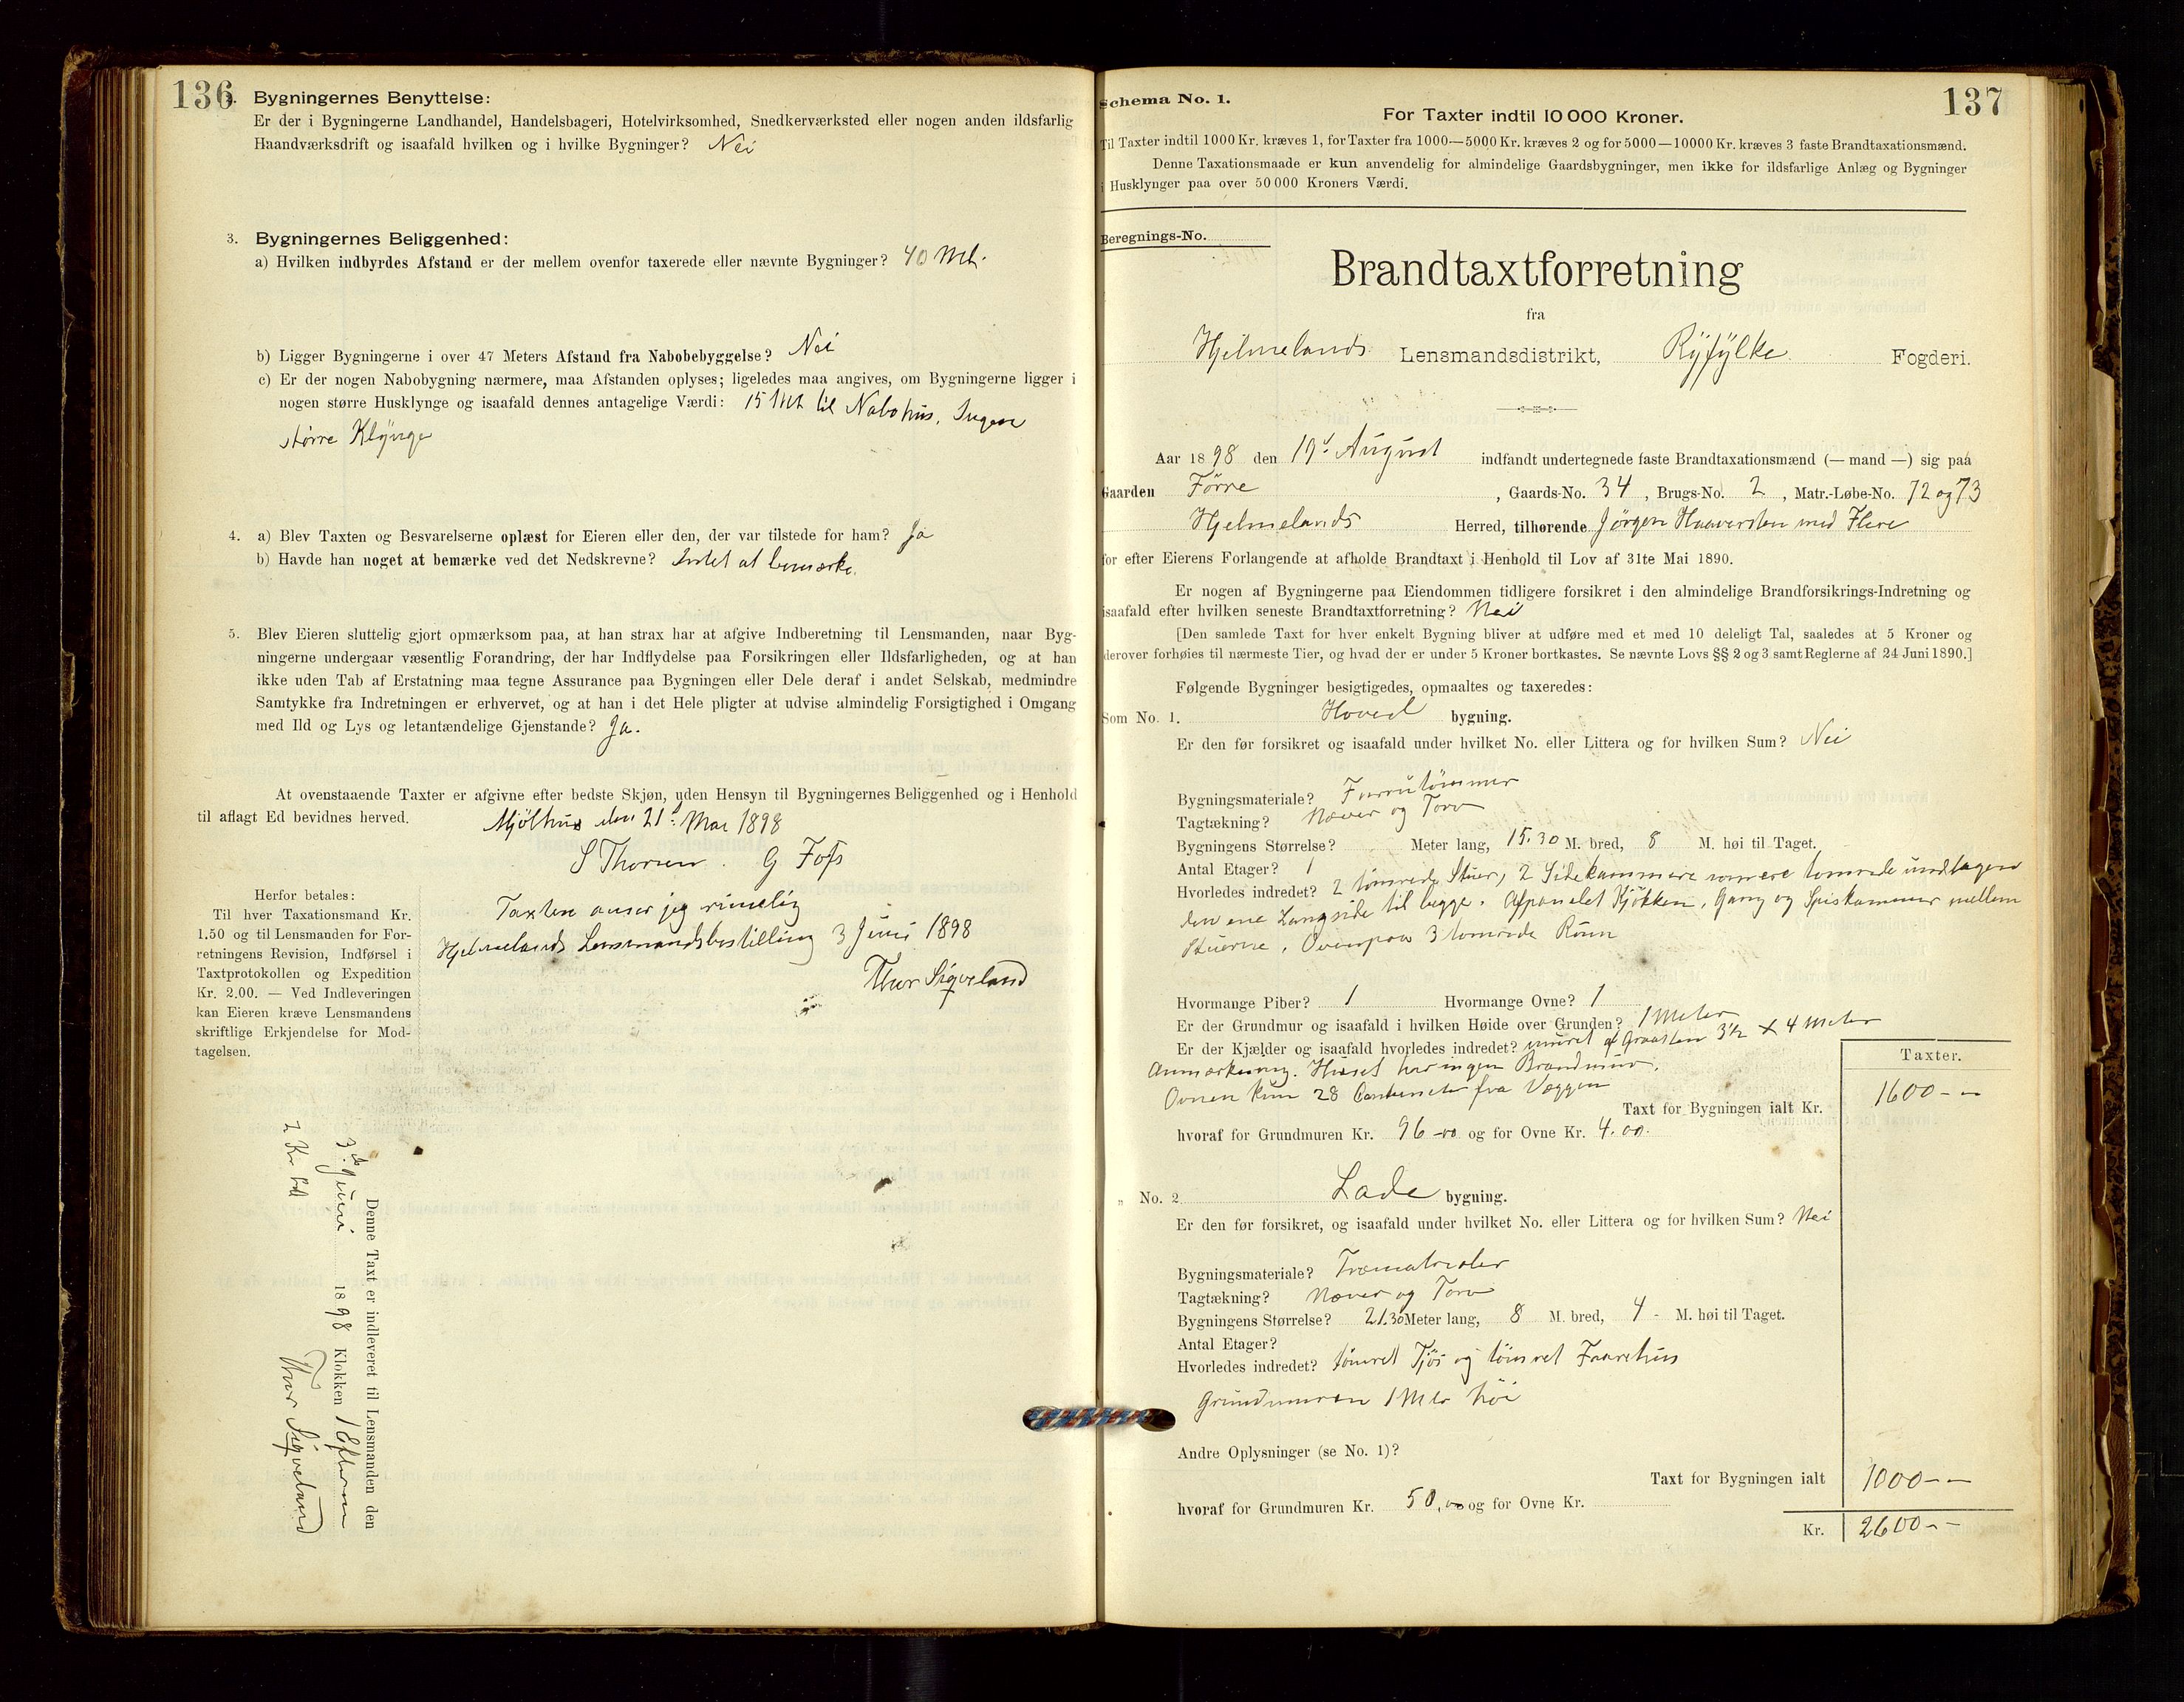 136
2. Bygningernes Benyttelse:
Er der i Bygningerne Landhandel, Handelsbageri, Hotelvirksomhed, Snedkerværksted eller nogen anden ildsfarlig
Haandværksdrift og isaafald hvilken og i hvilke Bygninger? Nei
3. Bygningernes Beliggenhed:
a) Hvilken indbyrdes Afstand er der mellem ovenfor taxerede eller nævnte Bygninger? 40 Mtr.
b) Ligger Bygningerne i over 47 Meters Afstand fra Nabobebyggelse? Nei
c) Er der nogen Nabobygning nærmere, maa Afstanden oplyses; ligeledes maa angives, om Bygningerne ligger i
nogen større Husklynge og isaafald dennes antagelige Værdi: 15 Mt til Nabohus. Ingen
større Klynge
4. a) Blev Taxten og Besvarelserne oplæst for Eieren eller den, der var tilstede for ham? Ja
b) Havde han noget at bemærke ved det Nedskrevne? Intet at bemærke.
5. Blev Eieren sluttelig gjort opmærksom paa, at han strax har at afgive Indberetning til Lensmanden, naar Byg-
ningerne undergaar væsentlig Forandring, der har Indflydelse paa Forsikringen eller Ildsfarligheden, og at han
ikke uden Tab af Erstatning maa tegne Assurance paa Bygningen eller Dele deraf i andet Selskab, medmindre
Samtykke fra Indretningen er erhvervet, og at han i det Hele pligter at udvise almindelig Forsigtighed i Omgang
med Ild og Lys og letantændelige Gjenstande? Ja.
At ovenstaaende Taxter er afgivne efter bedste Skjøn, uden Hensyn til Bygningernes Beliggenhed og i Henhold
til aflagt Ed bevidnes herved.
Mjølhus den 21d Mai 1898
S Thorsen. G Foss
Taxten anser jeg rimelig
Hjelmelands Lensmandsbestilling 3 Juni 1898
Thor Sigveland
Herfor betales:
Til hver Taxationsmand Kr.
1.50 og til Lensmanden for For-
retningens Revision, Indførsel i
Taxtprotokollen og Expedition
Kr. 2.00. — Ved Indleveringen
kan Eieren kræve Lensmandens
skriftlige Erkjendelse for Mod-
tagelsen.
Denne Taxt er indleveret til Lensmanden den
3d Juni 1898 Klokken 1 Efterm
Thor Sigveland
2 Kr
137
Schema No. 1.
For Taxter indtil 10 000 Kroner.
Til Taxter indtil 1000 Kr. kræves 1, for Taxter fra 1000—5000 Kr. kræves 2 og for 5000—10000 Kr. kræves 3 faste Brandtaxationsmænd.
Denne Taxationsmaade er kun anvendelig for almindelige Gaardsbygninger, men ikke for ildsfarlige Anlæg og Bygninger
i Husklynger paa over 50 000 Kroners Værdi.
Beregnings-No.
Brandtaxtforretning
fra
Hjelmelands Lensmandsdistrikt, Ryfylke Fogderi.
Aar 1898 den 19d August indfandt undertegnede faste Brandtaxationsmænd (— mand —) sig paa
Gaarden Førre, Gaards-No. 34, Brugs-No. 2, Matr.-Løbe-No. 72 og 73
Hjelmelands Herred, tilhørende Jørgen Haaversten med Flere
for efter Eierens Forlangende at afholde Brandtaxt i Henhold til Lov af 31te Mai 1890.
Er nogen af Bygningerne paa Eiendommen tidligere forsikret i den almindelige Brandforsikrings-Indretning og
isaafald efter hvilken seneste Brandtaxtforretning? Nei
[Den samlede Taxt for hver enkelt Bygning bliver at udføre med et med 10 deleligt Tal, saaledes at 5 Kroner og
derover forhøies til nærmeste Tier, og hvad der er under 5 Kroner bortkastes. Se nævnte Lovs §§ 2 og 3 samt Reglerne af 24 Juni 1890.]
Følgende Bygninger besigtigedes, opmaaltes og taxeredes:
Som No. 1. Hoved bygning.
Er den før forsikret og isaafald under hvilket No. eller Littera og for hvilken Sum? Nei
Bygningsmateriale? Furrutømmer
Tagtækning? Næver og Torv
Bygningens Størrelse? Meter lang, 15.30 M. bred, 8 M. høi til Taget.
Antal Etager? 1
Hvorledes indredet? 2 tømrede Stuer, 2 Sidekammere som ere tømrede undtagen
den ene Langside til begge. Afpanelet Kjøkken, Gang og Spiskammer mellem
Stuerne. Ovenpaa 3 tømrede Rum
Hvormange Piber? 1 Hvormange Ovne? 1
Er der Grundmur og isaafald i hvilken Høide over Grunden? 1 Meter
Er der Kjælder og isaafald hvorledes indredet? muret af Graasten 3½ X 4 Meter
Anmærkning. Huset har ingen Brandmur.
Ovnen kun 28 Centimeter fra Væggen
Taxter.
Taxt for Bygningen ialt Kr. 1600--
hvoraf for Grundmuren Kr. 96-00 og for Ovne Kr. 4.00.
„ No. 2 Lade bygning.
Er den før forsikret, og isaafald under hvilket No. eller Littera og for hvilken Sum? Nei
Bygningsmateriale? Træmaterialer
Tagtækning? Næver og Torv
Bygningens Størrelse? 21.30 Meter lang, 8 M. bred, 4 - M. høi til Taget.
Antal Etager?
Hvorledes indredet? tømret Fjøs og tømret Faarehus
Grundmuren 1 Mtr høi
Andre Oplysninger (se No. 1)?
Taxt for Bygningen ialt 1000--
hvoraf for Grundmuren Kr. 50,00 og for Ovne Kr.
Kr. 2600--